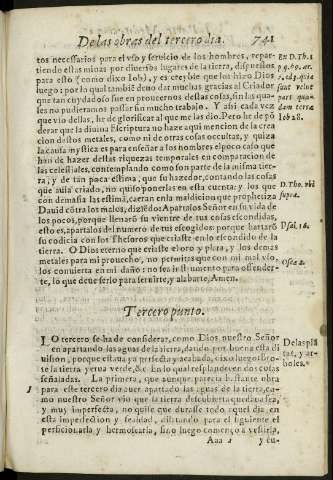 De las obras del tercero dia. 741
tos necessarios para el vso y seruicio de los hombres, repar-
tiendo estas minas por diuersos lugares de la tierra, dispuestos
para esto (como dixo Iob), y es creyble que los hizo Dios
luego: por lo qual tambiē deuo dar muchas gracias al Criador
que tan cuydadoso fue en proueernos destas cosas, sin las qua-
les no pudieramos passar sin mucho trabajo. Y assi cada vez
que vso dellas, he de glorificar al que me las dio. Pero he de pō
derar que la diuina Escriptura no haze aqui mencion de la crea
cion destos metales, como ni de otras cosas occultas, y quiza
la causa mystica es para enseñar a los hombres el poco caso que
han de hazer destas riquezas temporales en comparacion de
las celestiales, contemplando como son parte de la misma tier-
ra, y de tan poca estima, que su hazedor, contando las cosas
que auia criado, no quiso ponerlas en esta cuenta: y los que
con demasia las estimā, caeran en la maldicion que prophetiza
Dauid cōtra los malos, diziēdo: Apartalos Señor en su vida de
los pocos, porque llenarō su vientre de tus cosas escondidas,
esto es, apartalos del numero de tus escogidos porque hartarō
su codicia con los Thesoros que criaste en lo escondido de la
tierra. O Dios eterno que criaste el oro y plata, y los demas
metales para mi prouecho, no permitas que con mi mal vso,
los conuierta en mi daño: no sea instrumento para offender-
te, lo que deue serlo para seruirte, y alabarte, Amen.
En D. Th. 1
p. q. 69. ar.
Iob 28.
D. Tho. vbi
supra.
Psal. 16.
Osee 2.
Tercero punto.
LO tercero se ha de considerar, como Dios nuestro Señor
en apartando las aguas de la tierra, dando por buena esta di
uision, porque estaua ya perfecta y acabada, dixo luego: Bro-
te la tierra yerua verde, &c. En lo qual resplandecen dos cosas
señaladas. La primera, que aunque parecia bastante obra
para este tercero dia auer apartado las aguas de la tierra, co-
mo nuestro Señor vio que la tierra descubierta quedaua fea,
y muy imperfecta, no quiso que durasse todo aquel dia, en
esta imperfection y fealdad, dilatando para el siguiente el
perficionarla y hermosearla, sino luego començo a vestirla,
Aaa 2 y en-
De las plā
tas, y ar-
boles.
1